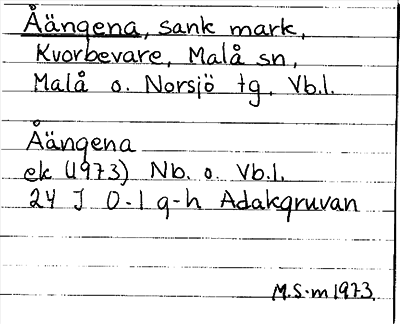 Åängena, sank mark,
Kvorbevare, Malå sn,
Malå o. Norsjö tg, Vb.l.
Åängena
ek (1973) Nb. o. Vb.l.
24 J 0-1 g-h Adakgruvan
M.S-m 1973.